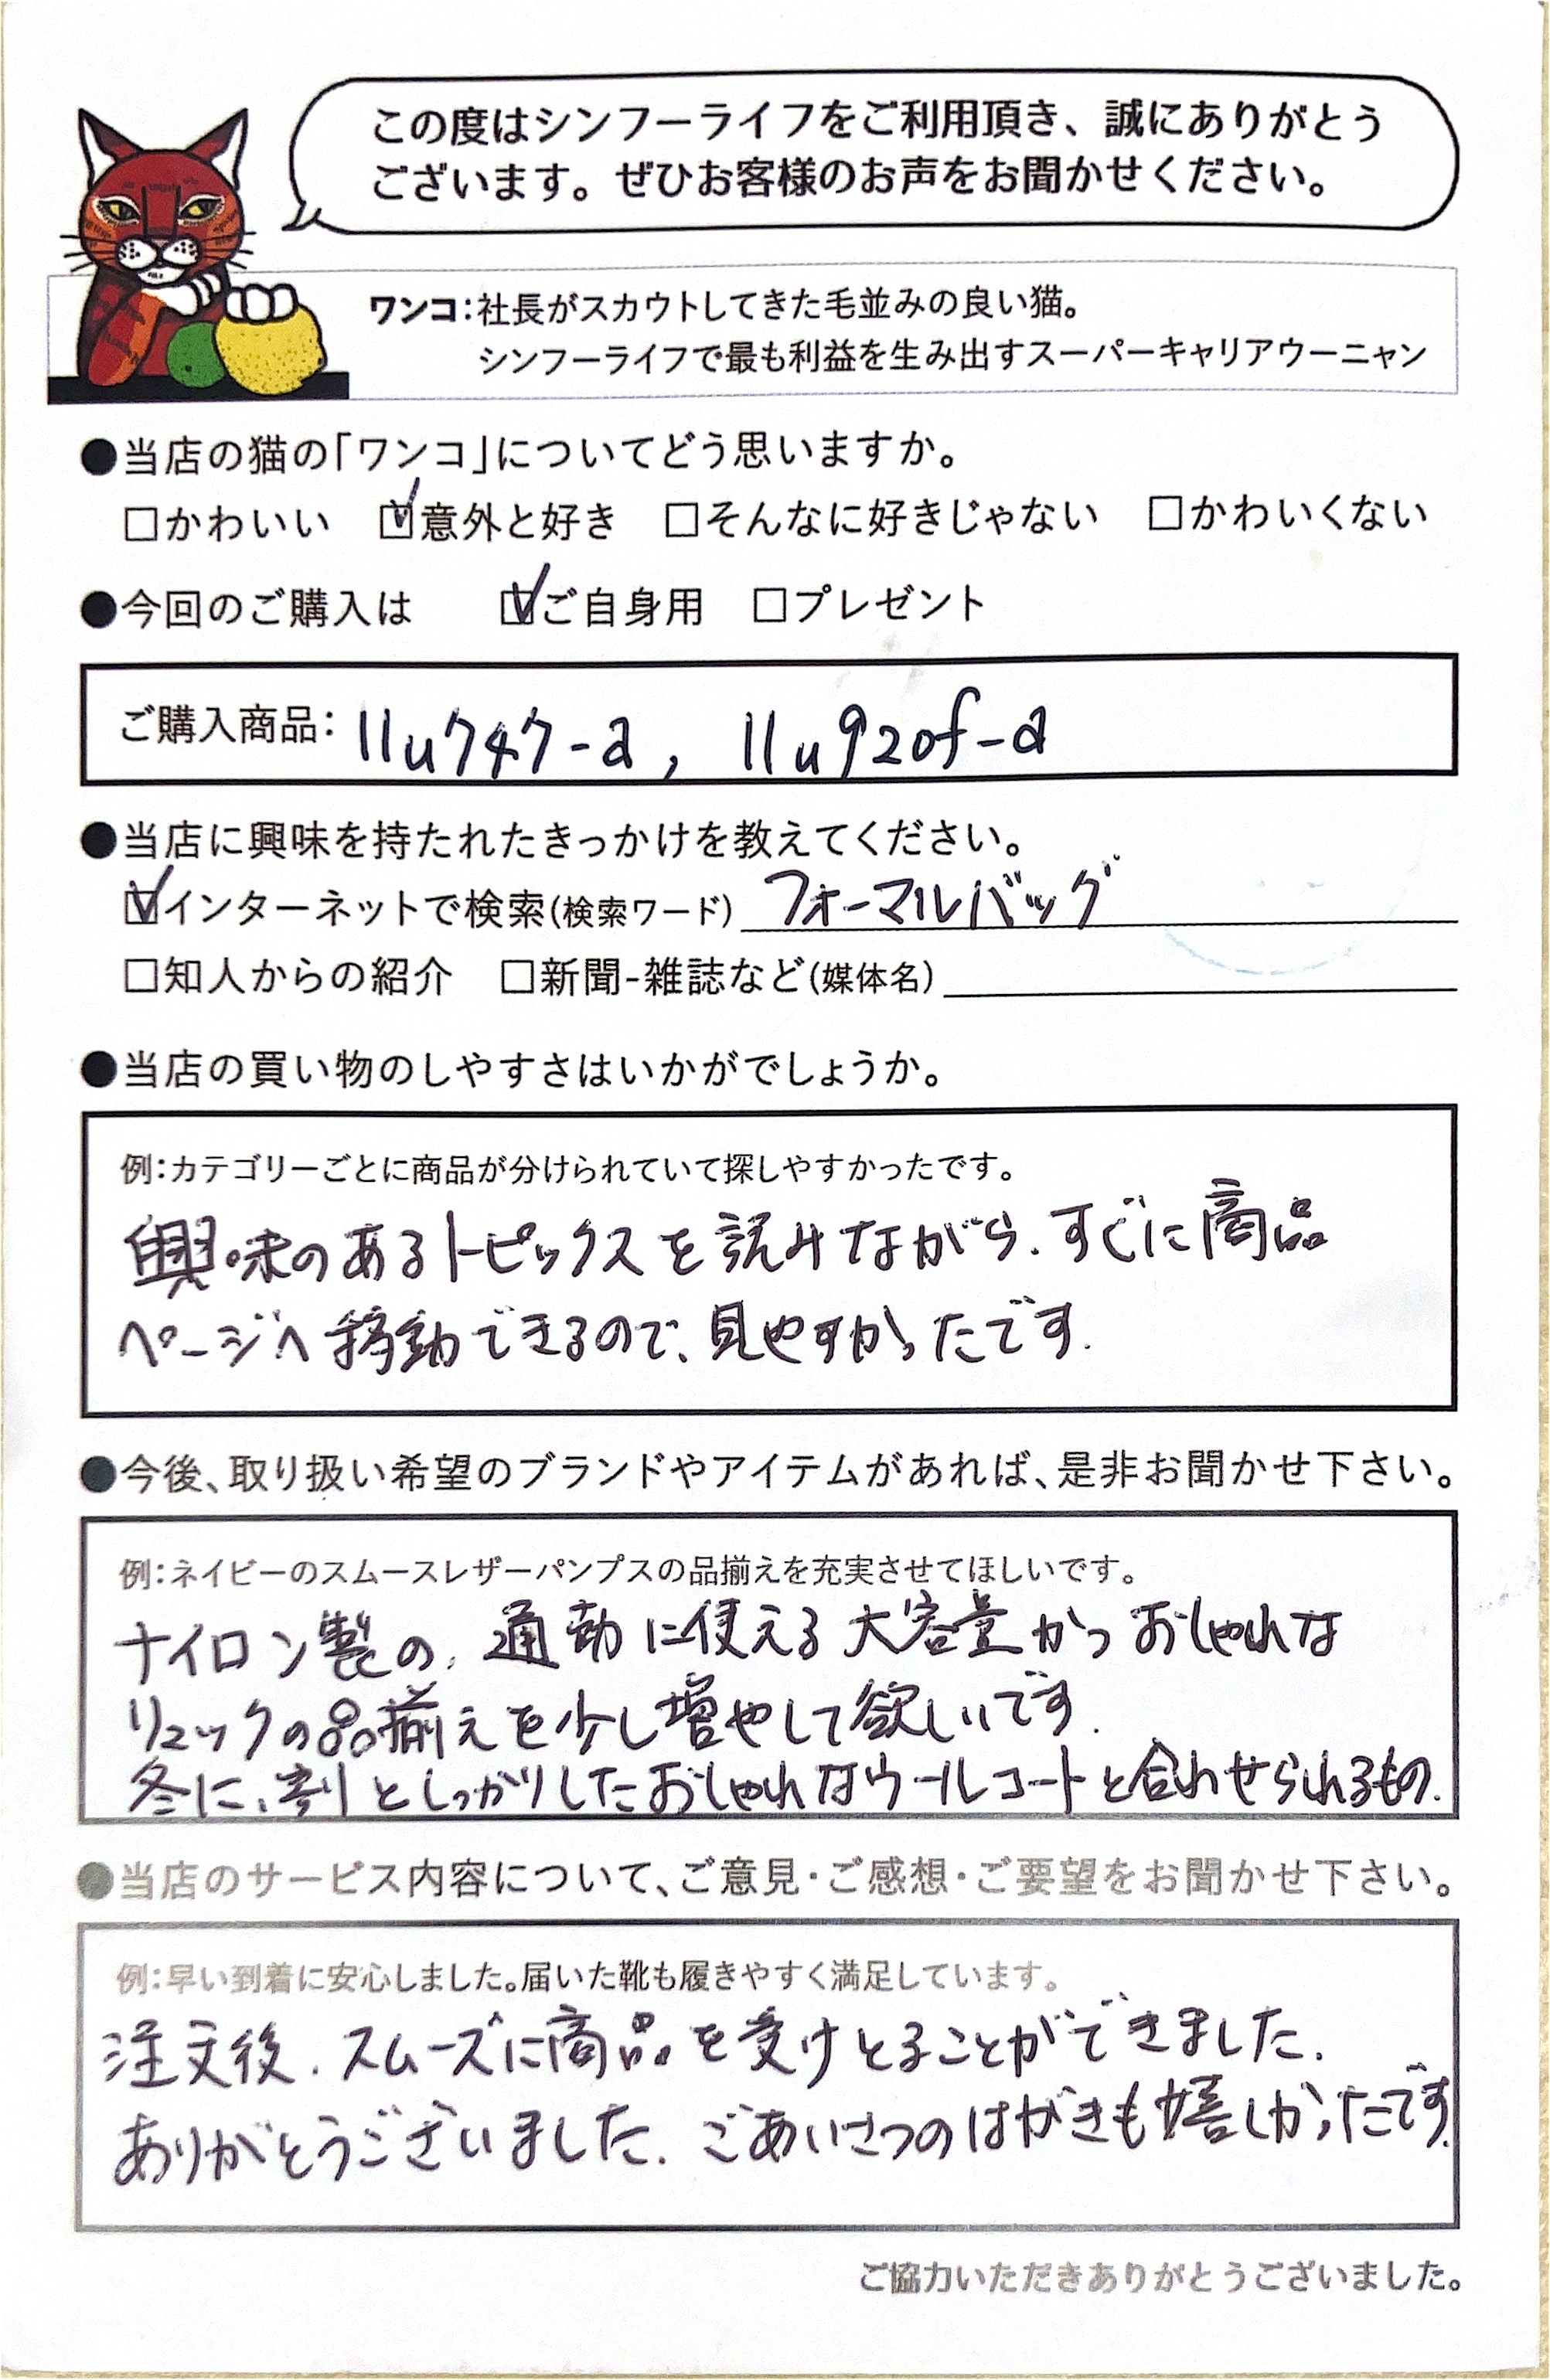 この度はシンフーライフをご利用頂き、誠にありがとう
ございます。ぜひお客様のお声をお聞かせください。
ワンコ：社長がスカウトしてきた毛並みの良い猫。
シンフーライフで最も利益を生み出すスーパーキャリアウーニャン
●当店の猫の「ワンコ」についてどう思いますか。
□かわいい ☑意外と好き □そんなに好きじゃない □かわいくない
●今回のご購入は ☑ご自身用 □プレゼント
ご購入商品：llu747-a, llu920f-a
●当店に興味を持たれたきっかけを教えてください。
☑インターネットで検索(検索ワード) フォーマルバッグ
□知人からの紹介 □新聞-雑誌など(媒体名)
●当店の買い物のしやすさはいかがでしょうか。
例：カテゴリーごとに商品が分けられていて探しやすかったです。
興味のあるトピックスを読みながら、すぐに商品
ページへ移動できるので、見やすかったです.
●今後、取り扱い希望のブランドやアイテムがあれば、是非お聞かせ下さい。
例：ネイビーのスムースレザーパンプスの品揃えを充実させてほしいです。
ナイロン製の、通勤に使える大容量かつおしゃれな
リュックの品揃えを少し増やして欲しいです.
冬に、割としっかりしたおしゃれなウールコートと合わせられるもの.
●当店のサービス内容について、ご意見・ご感想・ご要望をお聞かせ下さい。
例：早い到着に安心しました。届いた靴も履きやすく満足しています。
注文後、スムーズに商品を受けとることができました.
ありがとうございました. ごあいさつのはがきも嬉しかったです.
ご協力いただきありがとうございました。